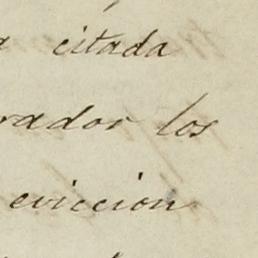 citada
rador los
eviccion